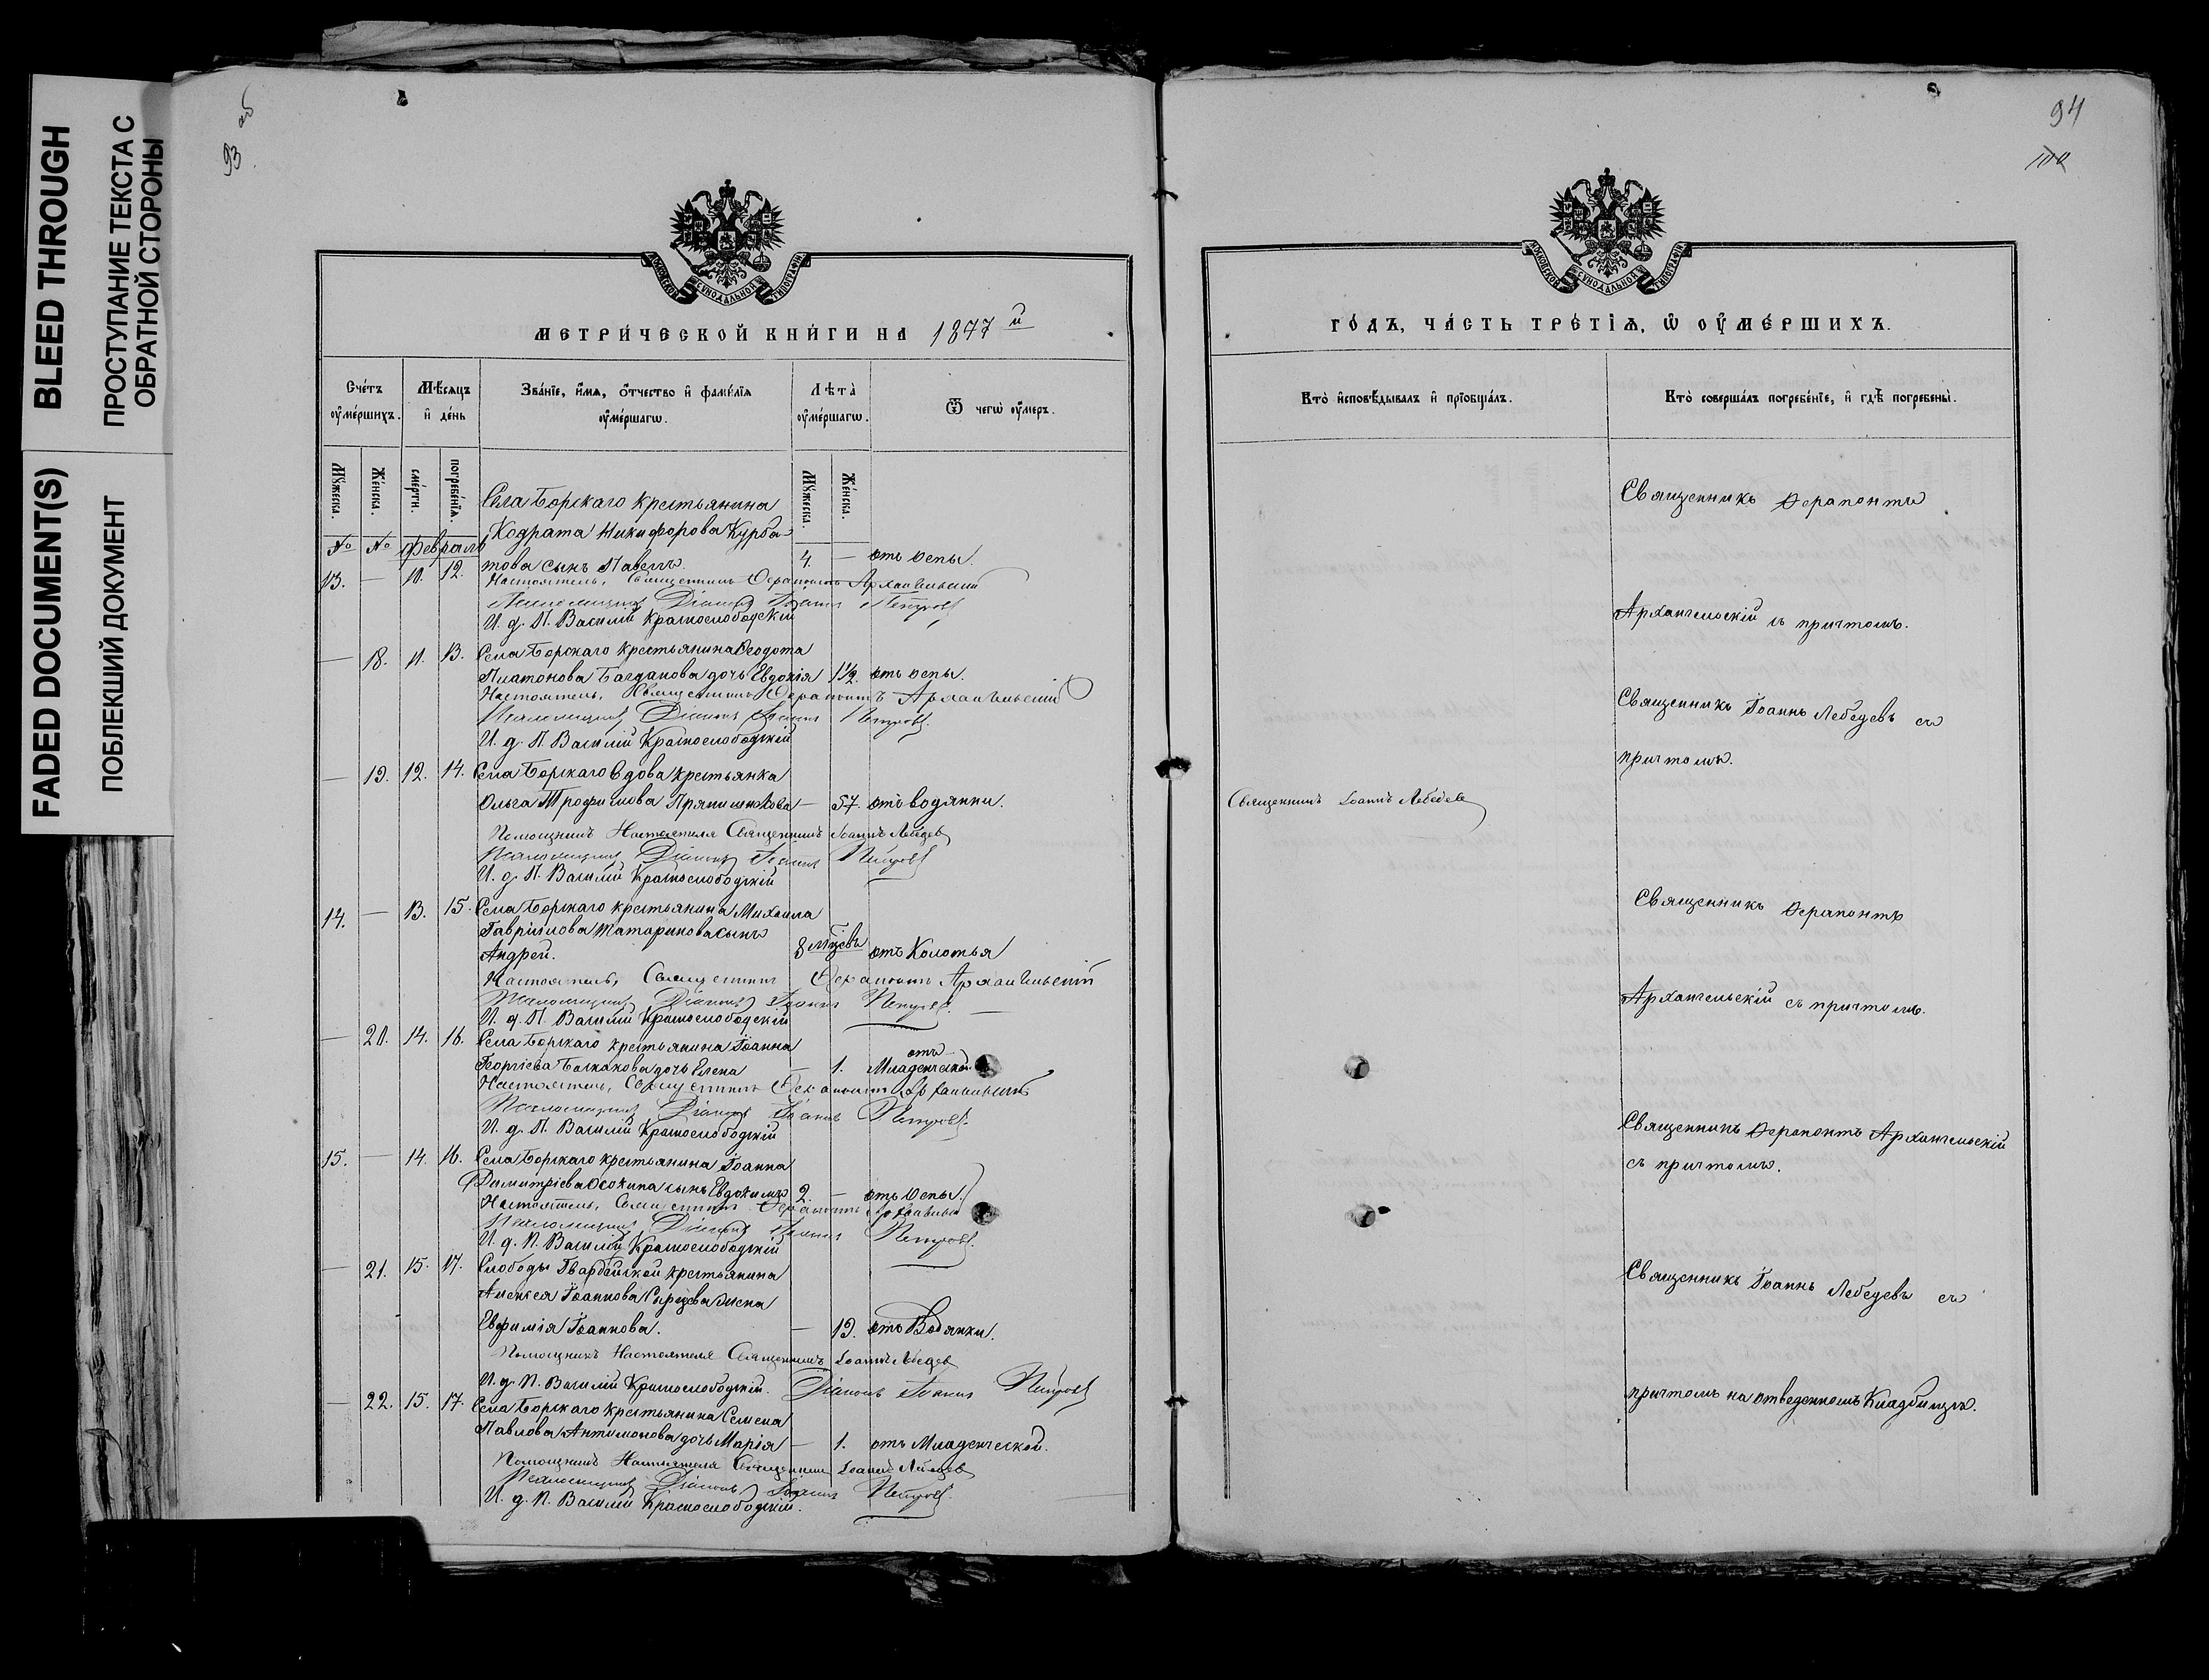 BLEED THROUGH
ПРОСТУПАНИЕ ТЕКСТА С
ОБРАТНОЙ СТОРОНЫ
FADED DOCUMENT(S)
ПОБЛЕКШИЙ ДОКУМЕНТ
93 об
МОСКОВСКОЙ СѴНОДАЛЬНОЙ ТѴПОГРАФІИ
МЕТРИ́ЧЕСКОЙ КНИ́ГИ НА 1877 й
Сче́тъ ᲂу҆ме́ршихъ.
Мѣ́сяцъ и҆ де́нь
Зва́нїе, и҆́мѧ, ѻ҆́тчество и҆ фами́лїѧ ᲂу҆ме́ршагѡ.
Лѣта̀ ᲂу҆ме́ршагѡ.
Ѿ чегѡ̀ ᲂу҆́меръ.
Мꙋ́жеска.
Же́нска.
сме́рти.
погребе́нїѧ.
Мꙋ́жеска.
Же́нска.
№ № февраль
Села Борскаго крестьянина
Кодрата Никифорова Курба-
13. — 10. 12. това сынъ Павелъ. 4. — отъ оспы.
Настоятель, Священникъ Ѳерапонтъ Архангельский
Псаломщикъ Діаконъ Іоаннъ Петровъ
И. д. П. Василій Краснослободскій
— 18. 11. 13. Села Борскаго крестьянина Ѳеодота
Платонова Багданова дочь Евдокія 1½ отъ оспы.
Настоятель, Священникъ Ѳерапонтъ Архангельский
Псаломщикъ Діаконъ Іоаннъ Петровъ.
И. д. П. Василій Краснослободскій
— 19. 12. 14. Села Борскаго вдова крестьянка
Ольга Трофимова — 57. отъ водянки.
Помощникъ Настоятеля Священникъ Іоаннъ Лебедев
Псаломщикъ Діаконъ Іоаннъ Петровъ
И. д. П. Василій Краснослободскій
14. — 13. 15. Села Борскаго крестьянина Михаила
Гавриилова Татаринова сынъ
Андрей. 8 мѣсяцевъ отъ Колотья
Настоятель, Священникъ Ѳерапонтъ Архангельский
Псаломщикъ Діаконъ Іоаннъ Петровъ.
И. д. П. Василій Краснослободскій
— 20. 14. 16. Села Борскаго крестьянина Іоанна
Георгіева дочь Елена — 1. отъ Младенческой
Настоятель, Священникъ Ѳерапонтъ Архангельский
Псаломщикъ Діаконъ Іоаннъ Петровъ.
И. д. П. Василій Краснослободскій
15. — 14. 16. Села Борскаго крестьянина Іоанна
Димитріева Осокина сынъ Евдокимъ 2. — отъ Оспы.
Настоятель, Священникъ Ѳерапонтъ Архангельский
Псаломщикъ Діаконъ Іоаннъ Петровъ.
И. д. П. Василій Краснослободскій
— 21. 15. 17. Слободы Гвардейской крестьянина
Алексея Іоаннова жена
Евфимія Іоаннова. — 19. отъ Водянки.
Помощникъ Настоятеля Священникъ Іоаннъ Лебедев
И. д. П. Василій Краснослободскій. Діаконъ Іоаннъ Петровъ
— 22. 15. 17. Села Борскаго крестьянина Семена
Павлова Антимонова дочь Марія — 1. отъ Младенческой.
Помощникъ Настоятеля Священникъ Іоаннъ Лебедев
Псаломщикъ Діаконъ Іоаннъ Петровъ.
И. д. П. Василій Краснослободскій.
94
100
МОСКОВСКОЙ СѴНОДАЛЬНОЙ ТѴПОГРАФІИ
ГО́ДЪ, ЧА́СТЬ ТРЕ́ТЇѦ, Ѡ҆ ОУ҆МЕ́РШИХЪ.
Кто̀ и҆сповѣ́дывалъ и҆ прїобща́лъ.
Кто̀ соверша́лъ погребе́нїе, и҆ гдѣ̀ погребены̀.
Священникъ Ѳерапонтъ
Архангельскій съ причтомъ.
Священникъ Іоаннъ Лебедевъ съ
причтомъ.
Священникъ Іоаннъ Лебедев
Священникъ Ѳерапонтъ
Архангельскій съ причтомъ.
Священникъ Ѳерапонтъ Архангельскій
съ причтомъ.
Священникъ Іоаннъ Лебедевъ съ
причтомъ на отведенномъ Кладбищѣ.